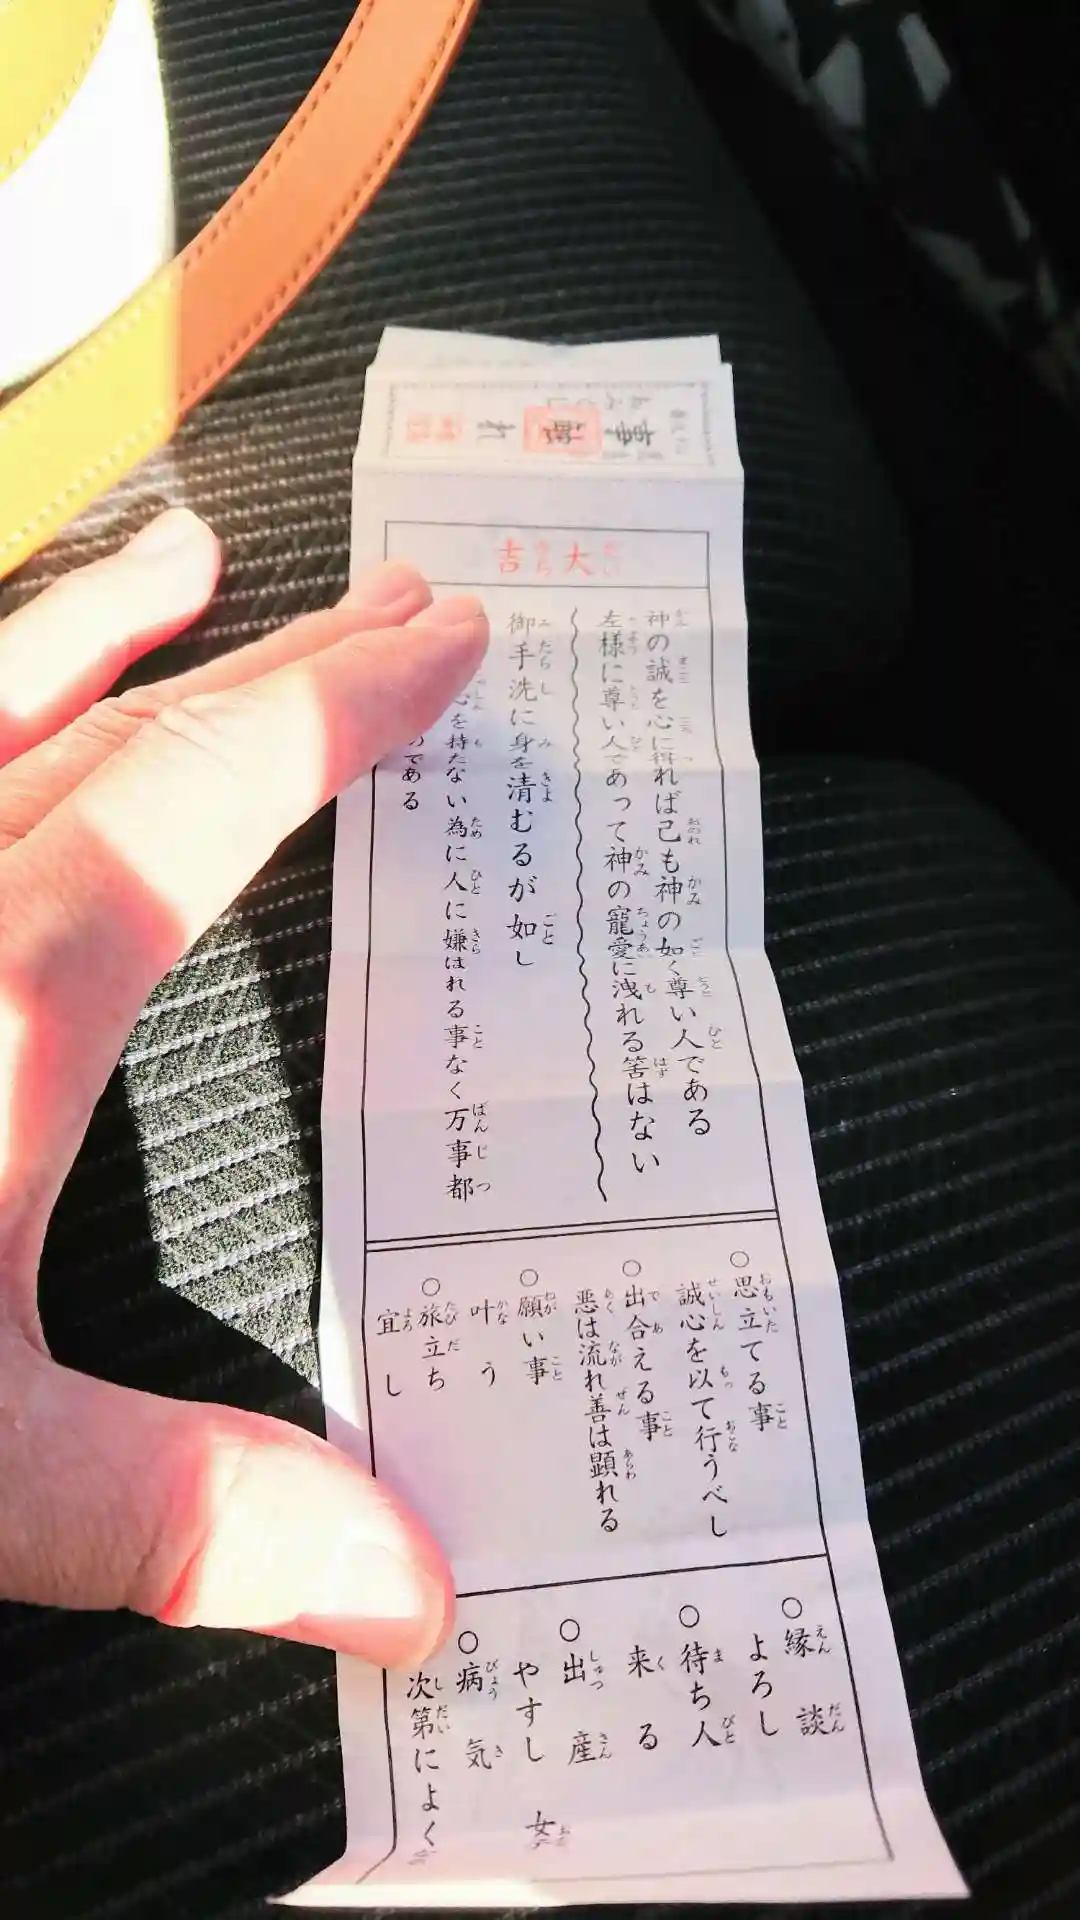 大吉
神の誠を心に得れば己も神の如く尊い人である
左様に尊い人であって神の寵愛に洩れる筈はない
御手洗に身を清むるが如し
心を持たない為に人に嫌はれる事なく万事都
のである
○思立てる事
誠心を以て行うべし
○出合える事
悪は流れ善は顕れる
○願い事
叶う
○旅立ち
宜し
○縁談
よろし
○待ち人
来る
○出産
やすし 女
○病気
次第によく